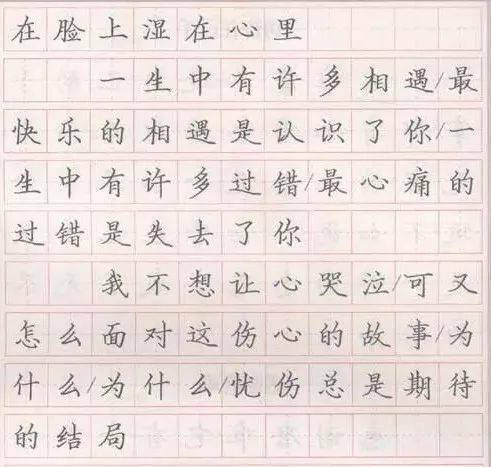 在脸上湿在心里
一生中有许多相遇/最
快乐的相遇是认识了你/一
生中有许多过错/最心痛的
过错是失去了你
我不想让心哭泣/可又
怎么面对这伤心的故事/为
什么/为什么/忧伤总是期待
的结局